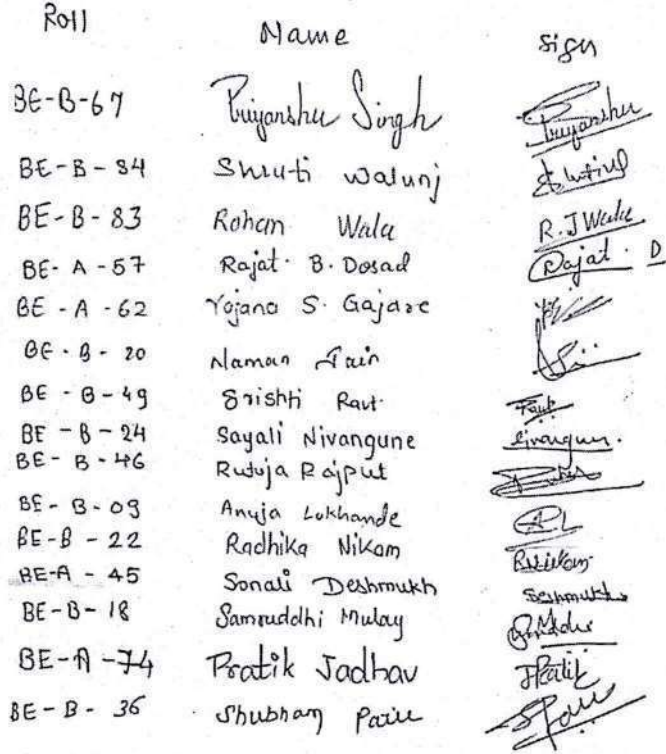 Roll Name Sign
BE-B-67 Priyanshu Singh Priyanshu
BE-B-84 Shruti Walunj
BE-B-83 Rohan Wala R.J Wala
BE-A-57 Rajat B. Dosad Rajat D
BE-A-62 Yojana S. Gajare
BE-B-20 Naman Jain
BE-B-49 Srishti Raut Raut
BE-B-24 Sayali Nivangune
BE-B-46 Rutuja Rajput
BE-B-09 Anuja Lokhande AL
BE-B-22 Radhika Nikam RNikam
BE-A-45 Sonali Deshmukh Deshmukh
BE-B-18 Samruddhi Mulay
BE-A-74 Pratik Jadhav Pratik
BE-B-36 Shubham